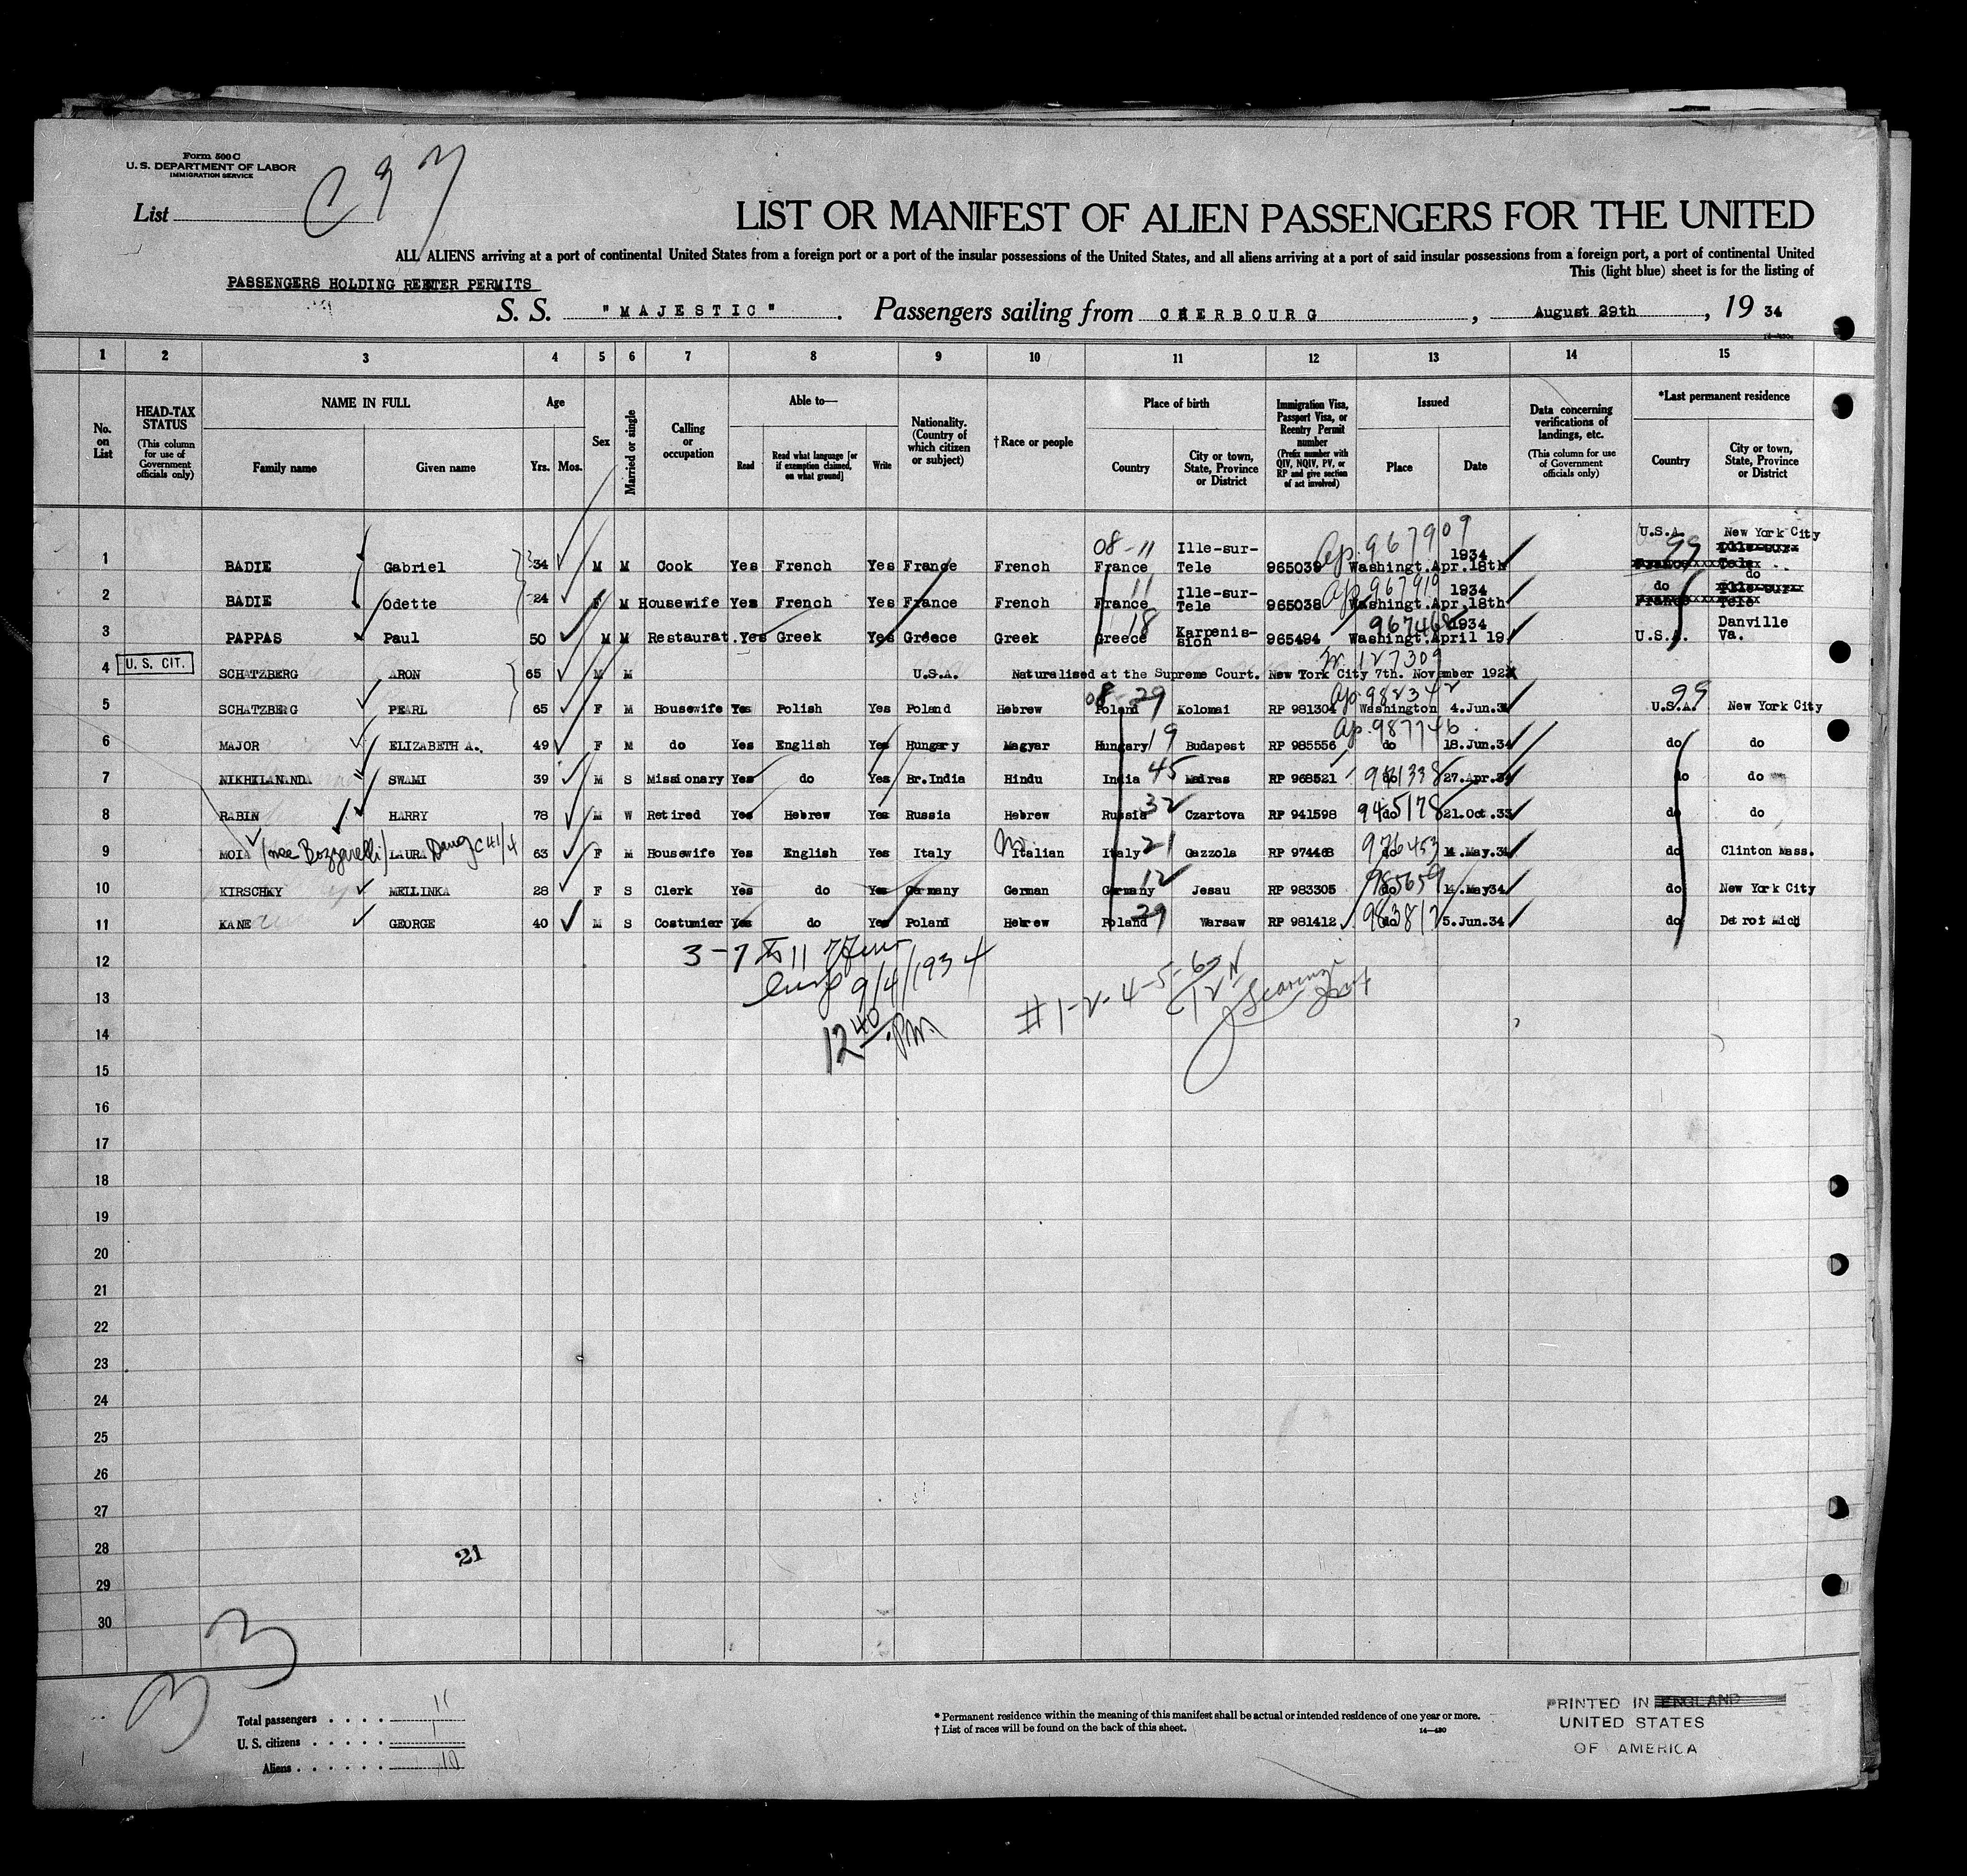 Form 500 C
U. S. DEPARTMENT OF LABOR
IMMIGRATION SERVICE
C 97
List
LIST OR MANIFEST OF ALIEN PASSENGERS FOR THE UNITED
ALL ALIENS arriving at a port of continental United States from a foreign port or a port of the insular possessions of the United States, and all aliens arriving at a port of said insular possessions from a foreign port, a port of continental United
This (light blue) sheet is for the listing of
PASSENGERS HOLDING REENTER PERMITS
S. S. "MAJESTIC". Passengers sailing from CHERBOURG, August 29th, 19 34
1 2 3 4 5 6 7 8 9 10 11 12 13 14 15
No. on List
HEAD-TAX STATUS (This column for use of Government officials only)
NAME IN FULL Family name Given name
Age Yrs. Mos.
Sex
Married or single
Calling or occupation
Able to— Read Read what language [or if exemption claimed, on what ground] Write
Nationality. (Country of which citizen or subject)
†Race or people
Place of birth Country City or town, State, Province or District
Immigration Visa, Passport Visa, or Reentry Permit number (Prefix number with QIV, NQIV, PV, or RP and give section of act involved)
Issued Place Date
Data concerning verifications of landings, etc. (This column for use of Government officials only)
*Last permanent residence Country City or town, State, Province or District
08-11 Ap. 967909 U.S.A. 99 New York City
1 BADIE Gabriel 34 M M Cook Yes French Yes France French France Ille-sur-Tele 965039 Washingt. Apr. 18th 1934 France Ille-sur-Tele
11 Ap. 967910
2 BADIE Odette 24 F M Housewife Yes French Yes France French France Ille-sur-Tele 965038 Washingt. Apr. 18th 1934 do do France Ille-sur-Tele
18 967468
3 PAPPAS Paul 50 M M Restaurat. Yes Greek Yes Greece Greek Greece Karpenission 965494 Washingt. April 19 1934 U.S.A. Danville Va.
127309
4 U. S. CIT. SCHATZBERG ARON 65 M M U.S.A. Naturalised at the Supreme Court. New York City 7th. November 192
08-29 Ap. 982342 99
5 SCHATZBERG PEARL 65 F M Housewife Yes Polish Yes Poland Hebrew Poland Kolomai RP 981304 Washington 4.Jun.34 U.S.A. New York City
Ap. 987746
6 MAJOR ELIZABETH A. 49 F M do Yes English Yes Hungary Magyar Hungary 19 Budapest RP 985556 do 18.Jun.34 do do
7 NIKHILANANDA SWAMI 39 M S Missionary Yes do Yes Br.India Hindu India 45 Madras RP 968521 do 981338 27.Apr.34 do do
8 RABIN HARRY 78 M W Retired Yes Hebrew Yes Russia Hebrew Russia 32 Czartova RP 941598 do 945178 21.Oct.33 do do
9 MOIA (nee Bozzarelli) LAURA Daug C41/4 63 F M Housewife Yes English Yes Italy N Italian Italy 21 Gazzola RP 974468 do 976453 14.May.34 do Clinton Mass.
10 KIRSCHKY MELLINKA 28 F S Clerk Yes do Yes Germany German Germany 12 Jesau RP 983305 do 985659 14.May34 do New York City
11 KANE GEORGE 40 M S Costumier Yes do Yes Poland Hebrew Poland 29 Warsaw RP 981412 do 983812 5.Jun.34 do Detroit Mich
12
3-7 to 11
13
9/4/1934
#1-2-4-5-6
14
12 40 P.M.
15
16
17
18
19
20
21
22
23
24
25
26
27
28
21
29
30
33
Total passengers . . . . 11
U. S. citizens . . . . . 1
Aliens . . . . . . 10
* Permanent residence within the meaning of this manifest shall be actual or intended residence of one year or more.
† List of races will be found on the back of this sheet.
14—430
PRINTED IN ENGLAND
UNITED STATES
OF AMERICA